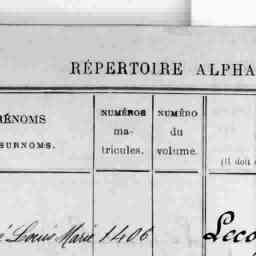 RÉPERTOIRE ALPHA
RÉNOMS
SURNOMS.
NUMÉROS
ma-
tricules.
NUMÉRO
du
volume.
(Il doit
Louis Marie 1406